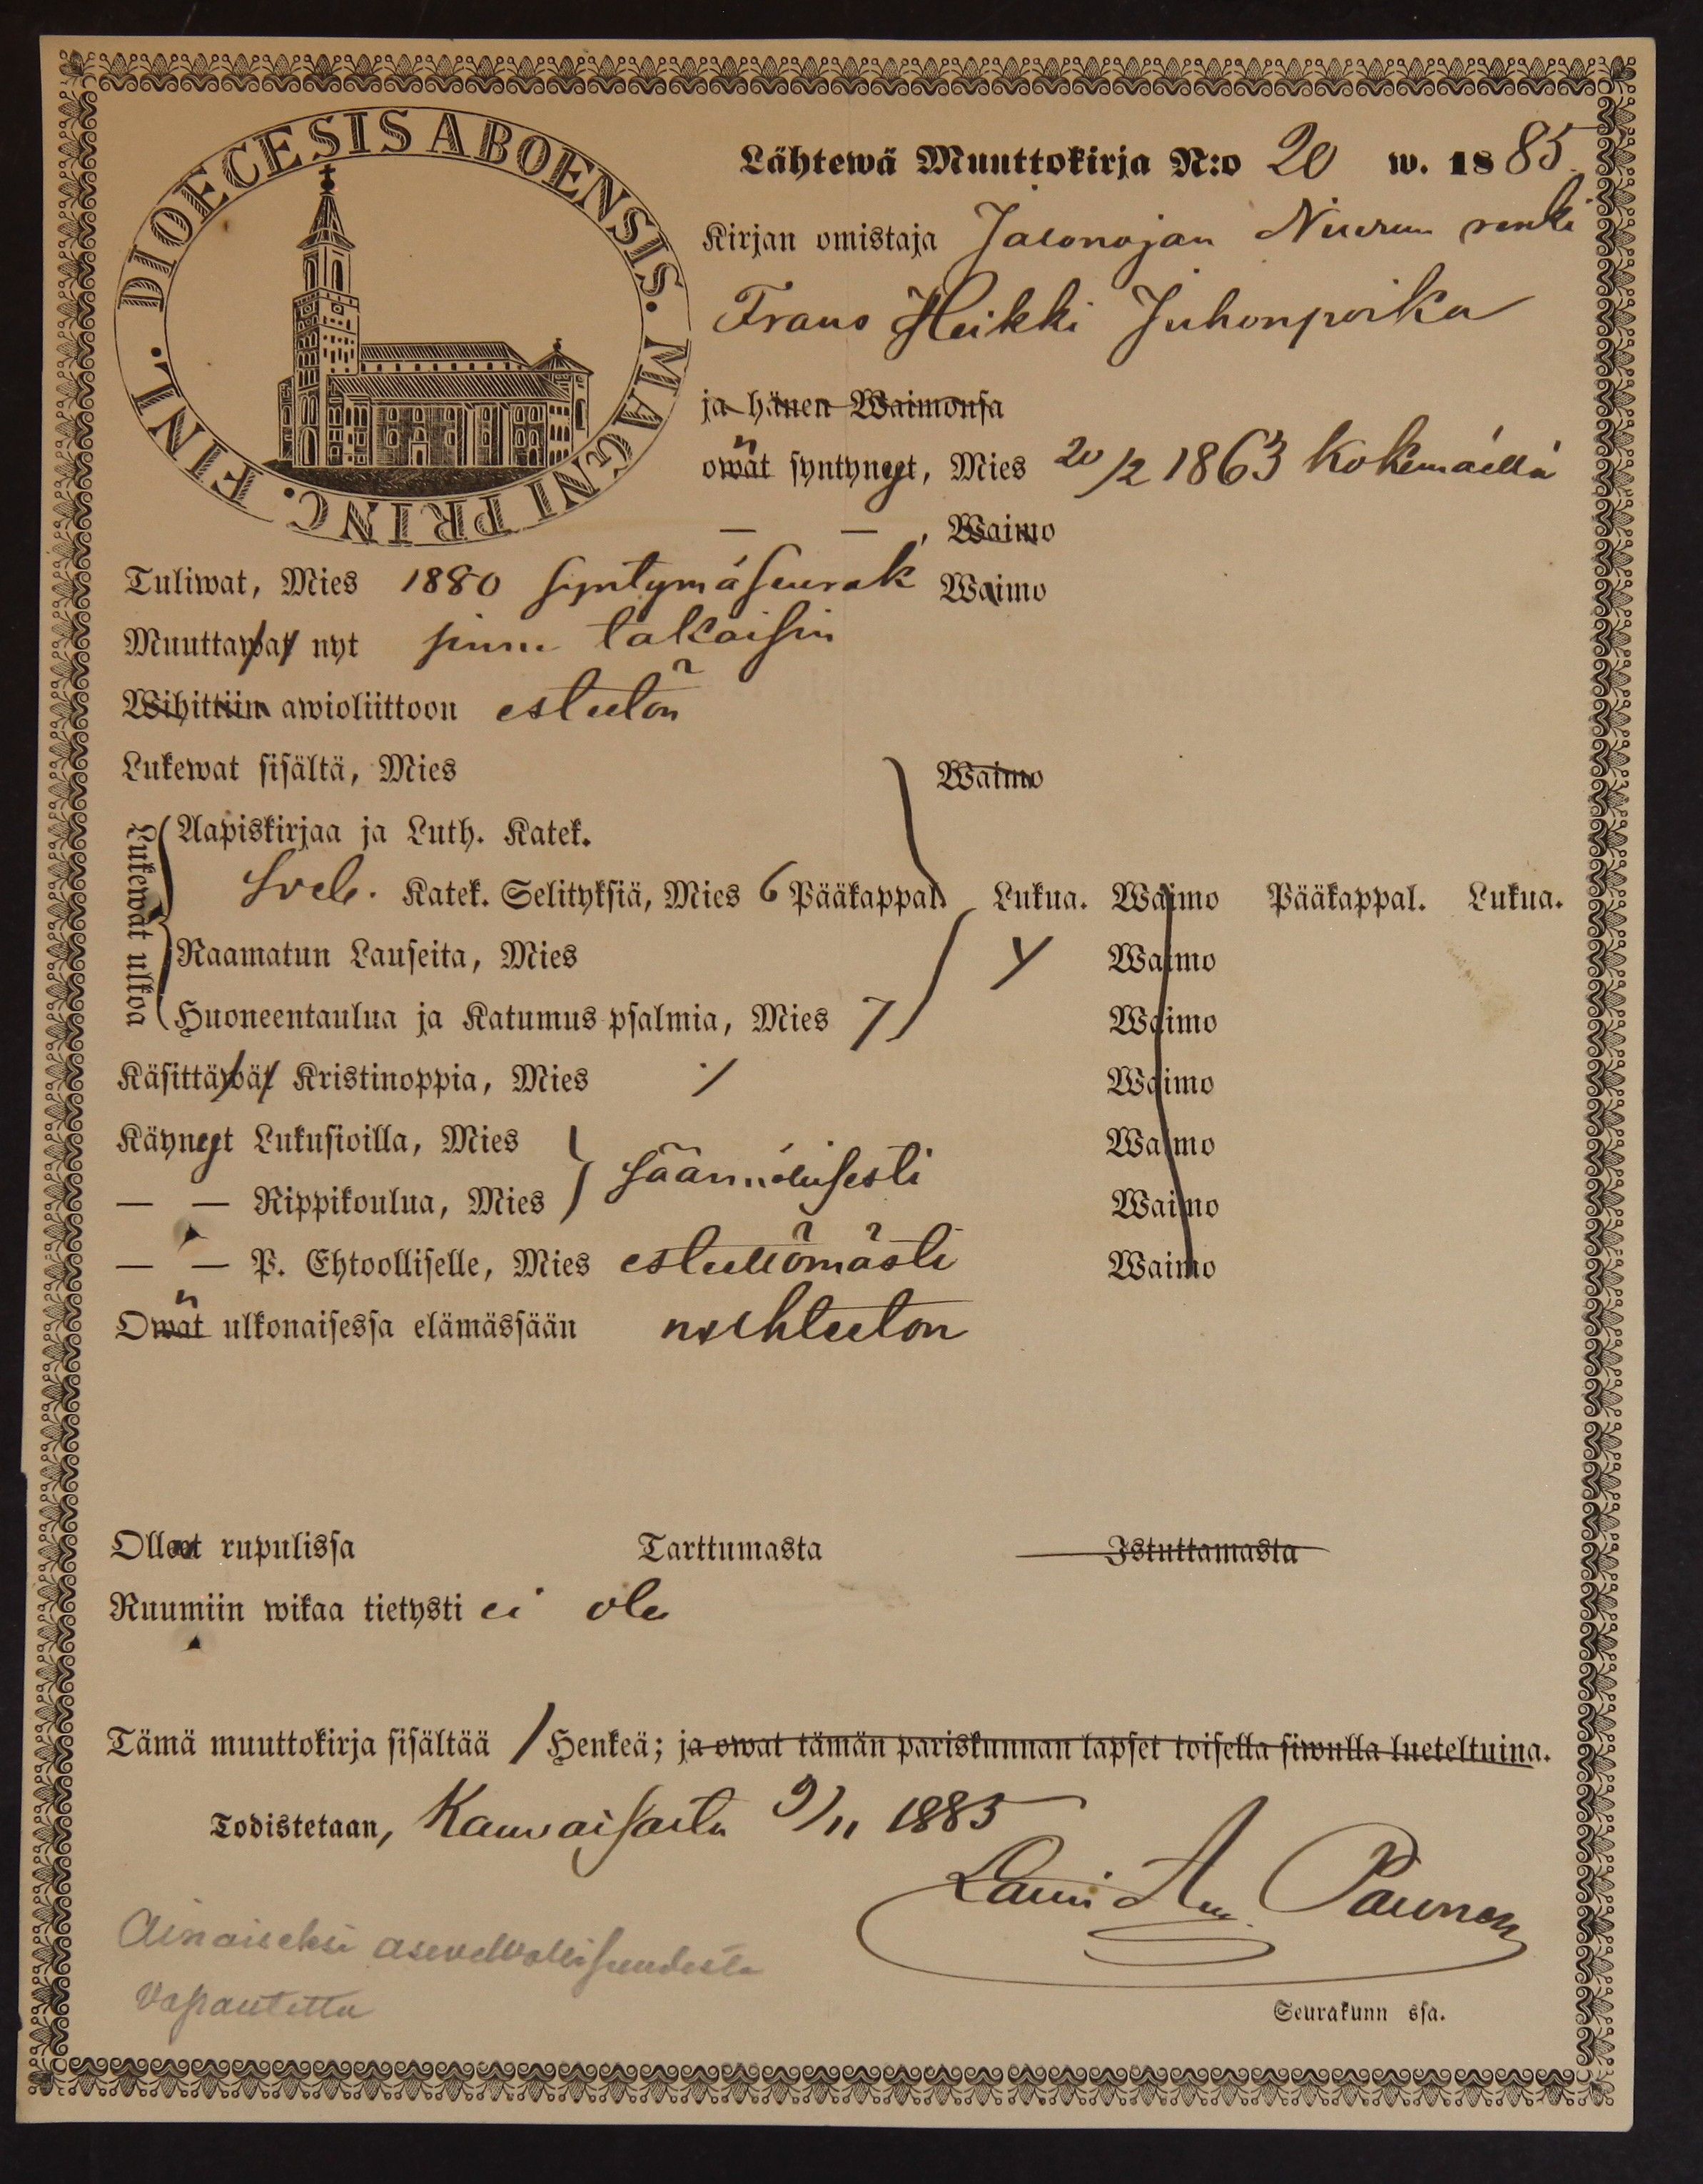 DIOECESIS ABOENSIS. MAGNI PRINC. FINL.
Lähtewä Muuttokirja N:o 20 w. 1885.
Kirjan omistaja renki
Frans Heikki Juhonpoika
ja hänen Waimonsa
n
owat syntyneet, Mies 20/2 1863 Kokemäellä
— — , Waimo
Tuliwat, Mies 1880 syntymäseurak Waimo
Muuttawat nyt sinne takaisin
Wihittiin awioliittoon esteetön
Lukewat sisältä, Mies Waimo
Lukewat ulkoa
Aapiskirjaa ja Luth. Katek.
Sveb. Katek. Selityksiä, Mies 6 Pääkappal. Lukua. Waimo Pääkappal. Lukua.
Raamatun Lauseita, Mies Waimo
Huoneentaulua ja Katumus psalmia, Mies Waimo
Käsittäwät Kristinoppia, Mies Waimo
Käyneet Lukusioilla, Mies Waimo
— — Rippikoulua, Mies säännöllisesti Waimo
— — P. Ehtoolliselle, Mies esteettömästi Waimo
n
Owat ulkonaisessa elämässään nuhteeton
Olleet rupulissa Tarttumasta Istuttamasta
Ruumiin wikaa tietysti ei ole
Tämä muuttokirja sisältää 1 Henkeä; ja owat tämän pariskunnan lapset toisella siwulla lueteltuina.
Todistetaan, Kauvaisasta 9/11 1885
Lauri Paunen
Ainaiseksi asevelvollisuudesta
vapautettu
Seurakunn ssa.